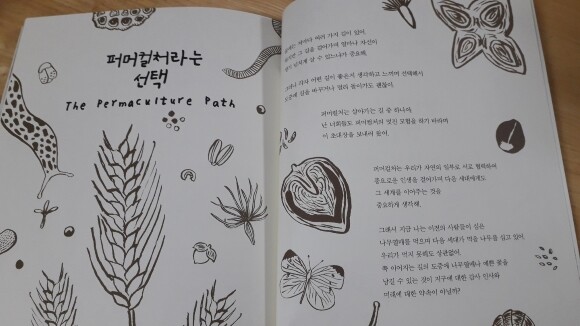 퍼머컬처라는
선택
The Permaculture Path
여러 가지 길이 있어.
그 길을 걸어가며 얼마나 자신이
살 수 있느냐가 중요해.
각자 어떤 길이 좋은지 생각하고 느끼며 선택해서
길을 바꾸거나 멀리 돌아가도 괜찮아.
퍼머컬처는 살아가는 길 중 하나야.
난 너희들도 퍼머컬처의 멋진 모험을 하기 바라며
이 초대장을 보내려 한어.
퍼머컬처는 우리가 자연의 일부로 서로 협력하며
풍요로운 인생을 걸어가며 다음 세대에게도
그 세계를 이어주는 것을
중요하게 생각해.
그래서 지금 나는 이전의 사람들이 심은
나무열매를 먹으며 다음 세대가 먹을 나무를 심고 있어.
우리가 먹지 못해도 상관없어.
쭉 이어지는 길의 도중에 나무열매나 예쁜 꽃을
남길 수 있는 것이 지구에 대한 감사 인사와
미래에 대한 약속이 아닐까?